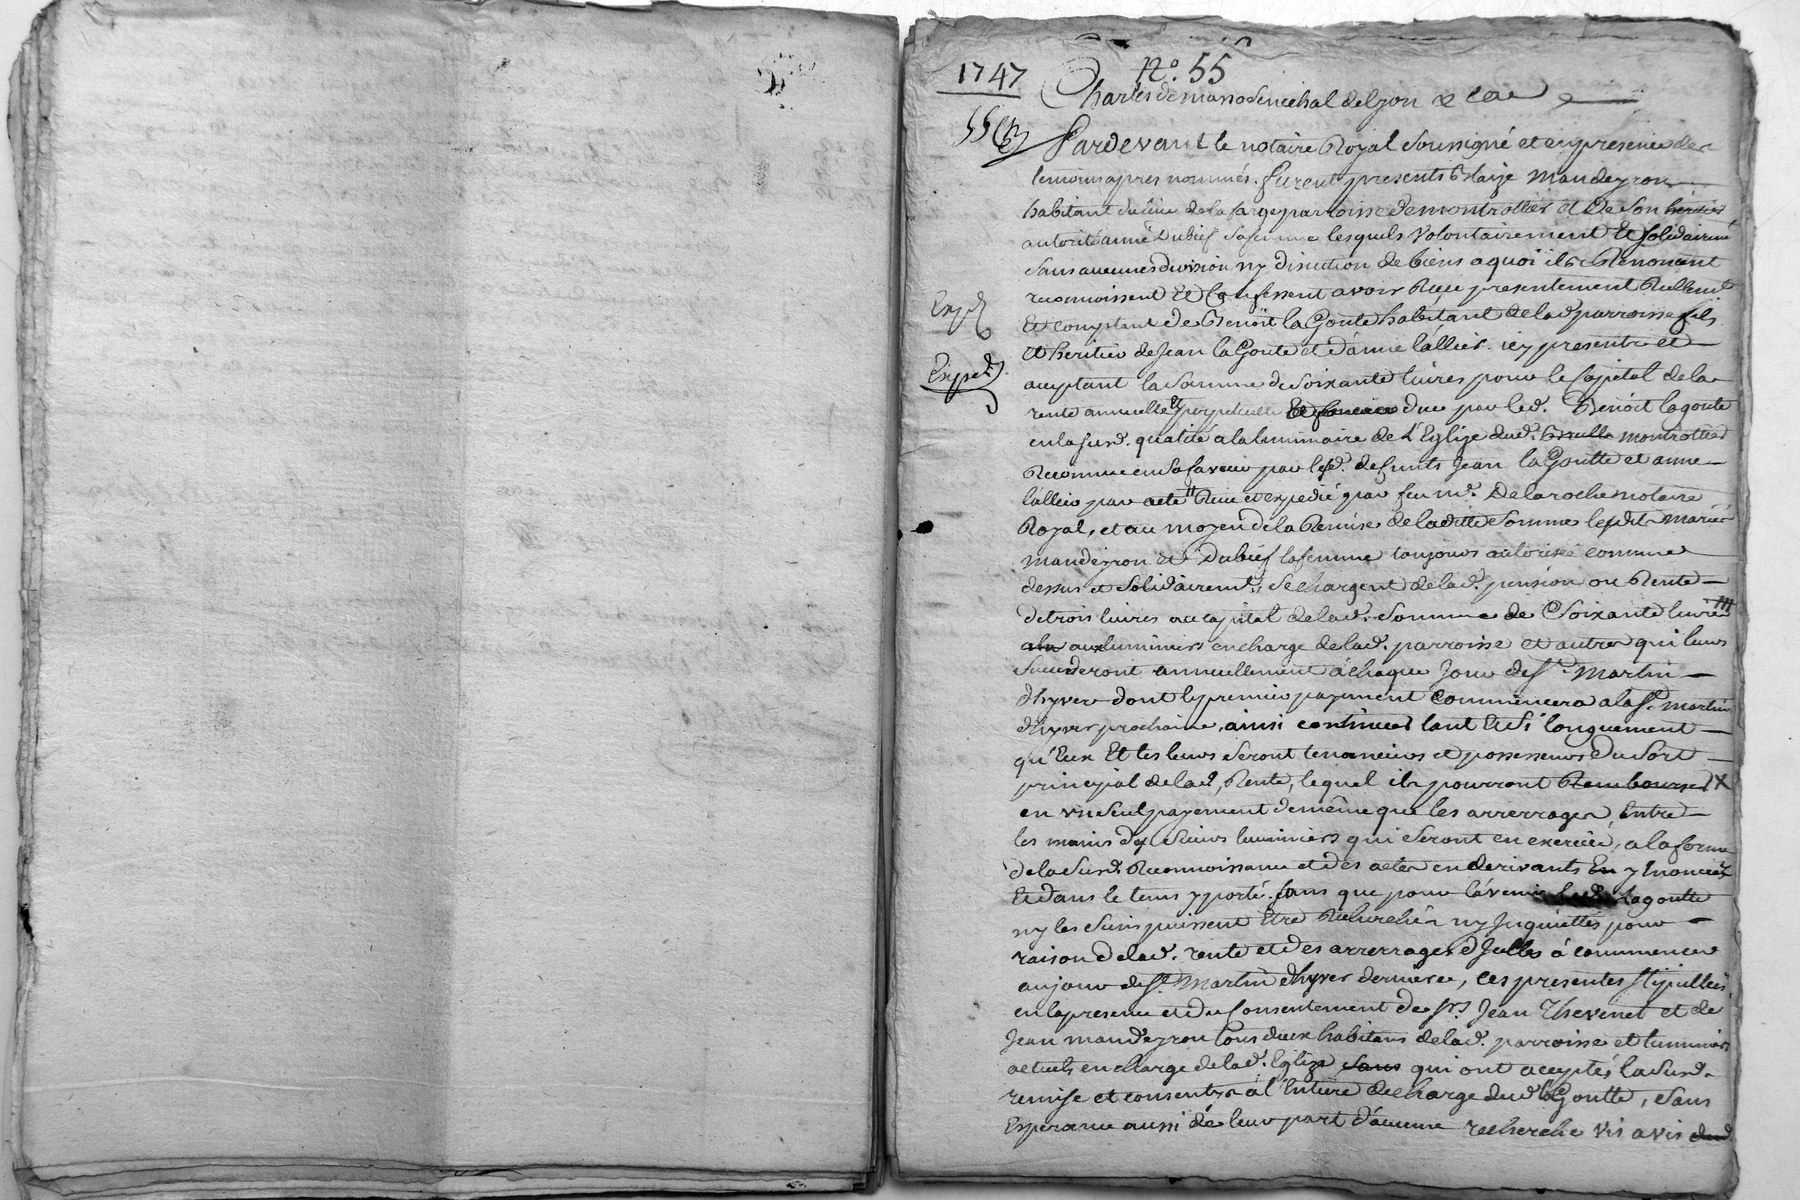 1747
N.° 55
Charles de masso Senechal de lyon & ca
55
Pardevant le notaire Royal soussigné et en presence des
temoins apres nommés. furent presents Blaize mandeyron
habitant du lieu de la farge parroisse de montrottier et de son
autorité anne Dubief sa femme lesquels volontairement et solidairemt
sans aucunes division ny discution de biens a quoi ils Renoncent
reconnoissent et Confessent avoir Reçu presentement Reellemt
et comptant de Benoit la Goute habitant de lad. parroisse fils
et heritier de Jean la Goute et d'anne lallier. icy present et
Exp.d
Exped.
acceptant la somme de soixante livres pour le Capital de la
rente annuelle et perpetuelle et fonciere due par led. Benoit lagoute
en la susd. qualité a la luminaire de l'Eglize dud. montrottier
Reconnue en sa faveur par lesd. defunts Jean la Goutte et anne
lallier par acte Reçu et expedié par feu me. Delaroche notaire
Royal, et au moyen de la Remise de laditte somme lesdits mariés
mandeyron et Dubief sa femme toujours autorisée comme
dessus et solidairemt. se chargent de lad. pension ou Rente
de trois livres au capital de lad. somme de Soixante livres
aux luminiers en charge de lad. parroisse et autres qui leurs
succederont annuellement à chaque Jour de St. Martin
d'hyver dont le premier payement commencera a la St. martin
d'hyver prochaine, ainsi continuer tant et si longuement
qu'Eux Et les leurs seront tenanciers et possesseurs du sort
principal de lad. Rente, lequel ils pourront Rembourser X
en un seul payement de même que les arrerrages, Entre
les mains des sieurs luminiers qui seront en exercice, a la forme
de la susd. Reconnoissance et des actes en derivants En y
Et dans le tems y porté. sans que pour l'avenir led. Lagoutte
ny les siens puissent Etre Recherchés ny Inquiettés pour
raison de lad. rente et des arrerrages d'Icelles à commencer
au jour de St. Martin d'hyver derniere, ces presentes stipullées
en la presence et du Consentement de srs. Jean Thevenet et de
Jean mandeyron tous deux habitans de lad. parroisse et luminiers
actuels en charge de lad. Eglize sans qui ont acceptés la susd.
remise et consentys à l'Entiere decharge dud. la Goutte, sans
Esperance aussi de leur part d'aucune recherche vis avis dud.